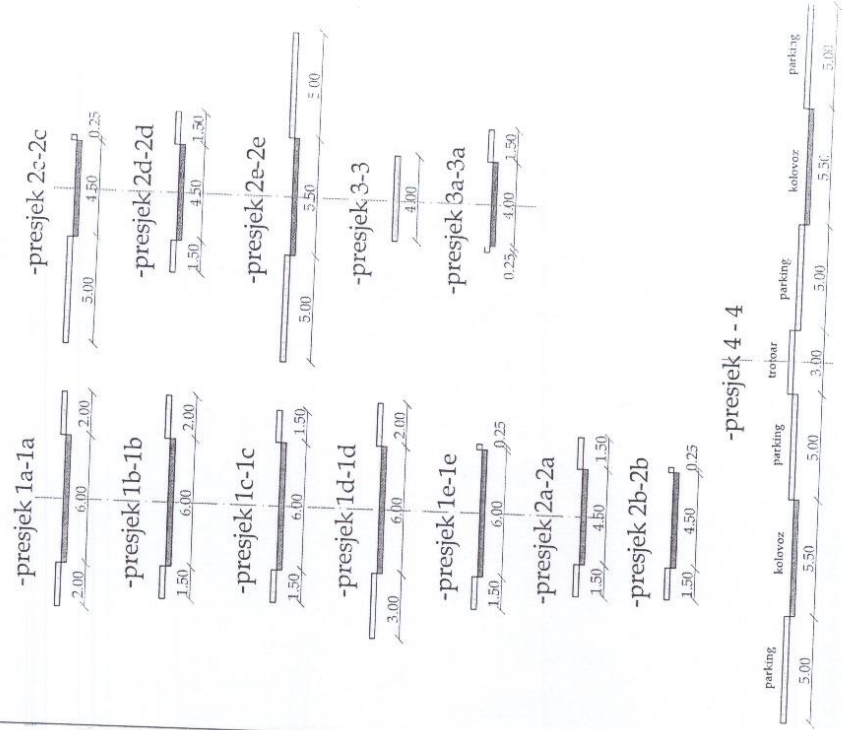 -presjek 1a-1a
2.00 6.00 2.00
-presjek 1b-1b
1.50 6.00 2.00
-presjek 1c-1c
1.50 6.00 1.50
-presjek 1d-1d
3.00 6.00 2.00
-presjek 1e-1e
1.50 6.00 0.25
-presjek 2a-2a
1.50 4.50 1.50
-presjek 2b-2b
1.50 4.50 0.25
-presjek 2c-2c
5.00 4.50 0.25
-presjek 2d-2d
1.50 4.50 1.50
-presjek 2e-2e
5.00 5.50 5.00
-presjek 3-3
4.00
-presjek 3a-3a
0.25 4.00 1.50
-presjek 4 - 4
parking kolovoz parking trotoar parking kolovoz parking
5.00 5.50 5.00 3.00 5.00 5.50 5.00